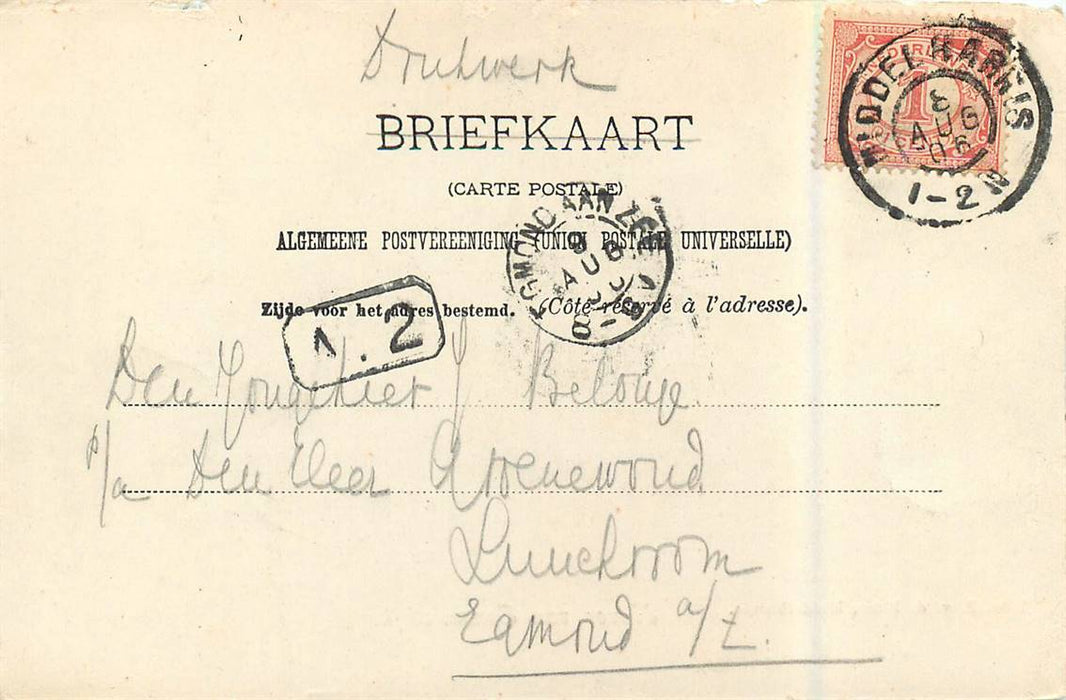 Drukwerk
BRIEFKAART
(CARTE POSTALE)
ALGEMEENE POSTVEREENIGING (UNION POSTALE UNIVERSELLE)
Zijde voor het adres bestemd. (Côté réservé à l'adresse).
NEDERLAND
1
MIDDELHARNIS
3
AUG
06
1-2 N
EGMOND AAN ZEE
AUG
8-
1.2
Den Jongeheer J Belonje
p/a Den Heer Groenewoud
Lunchroom
Egmond a/Z.